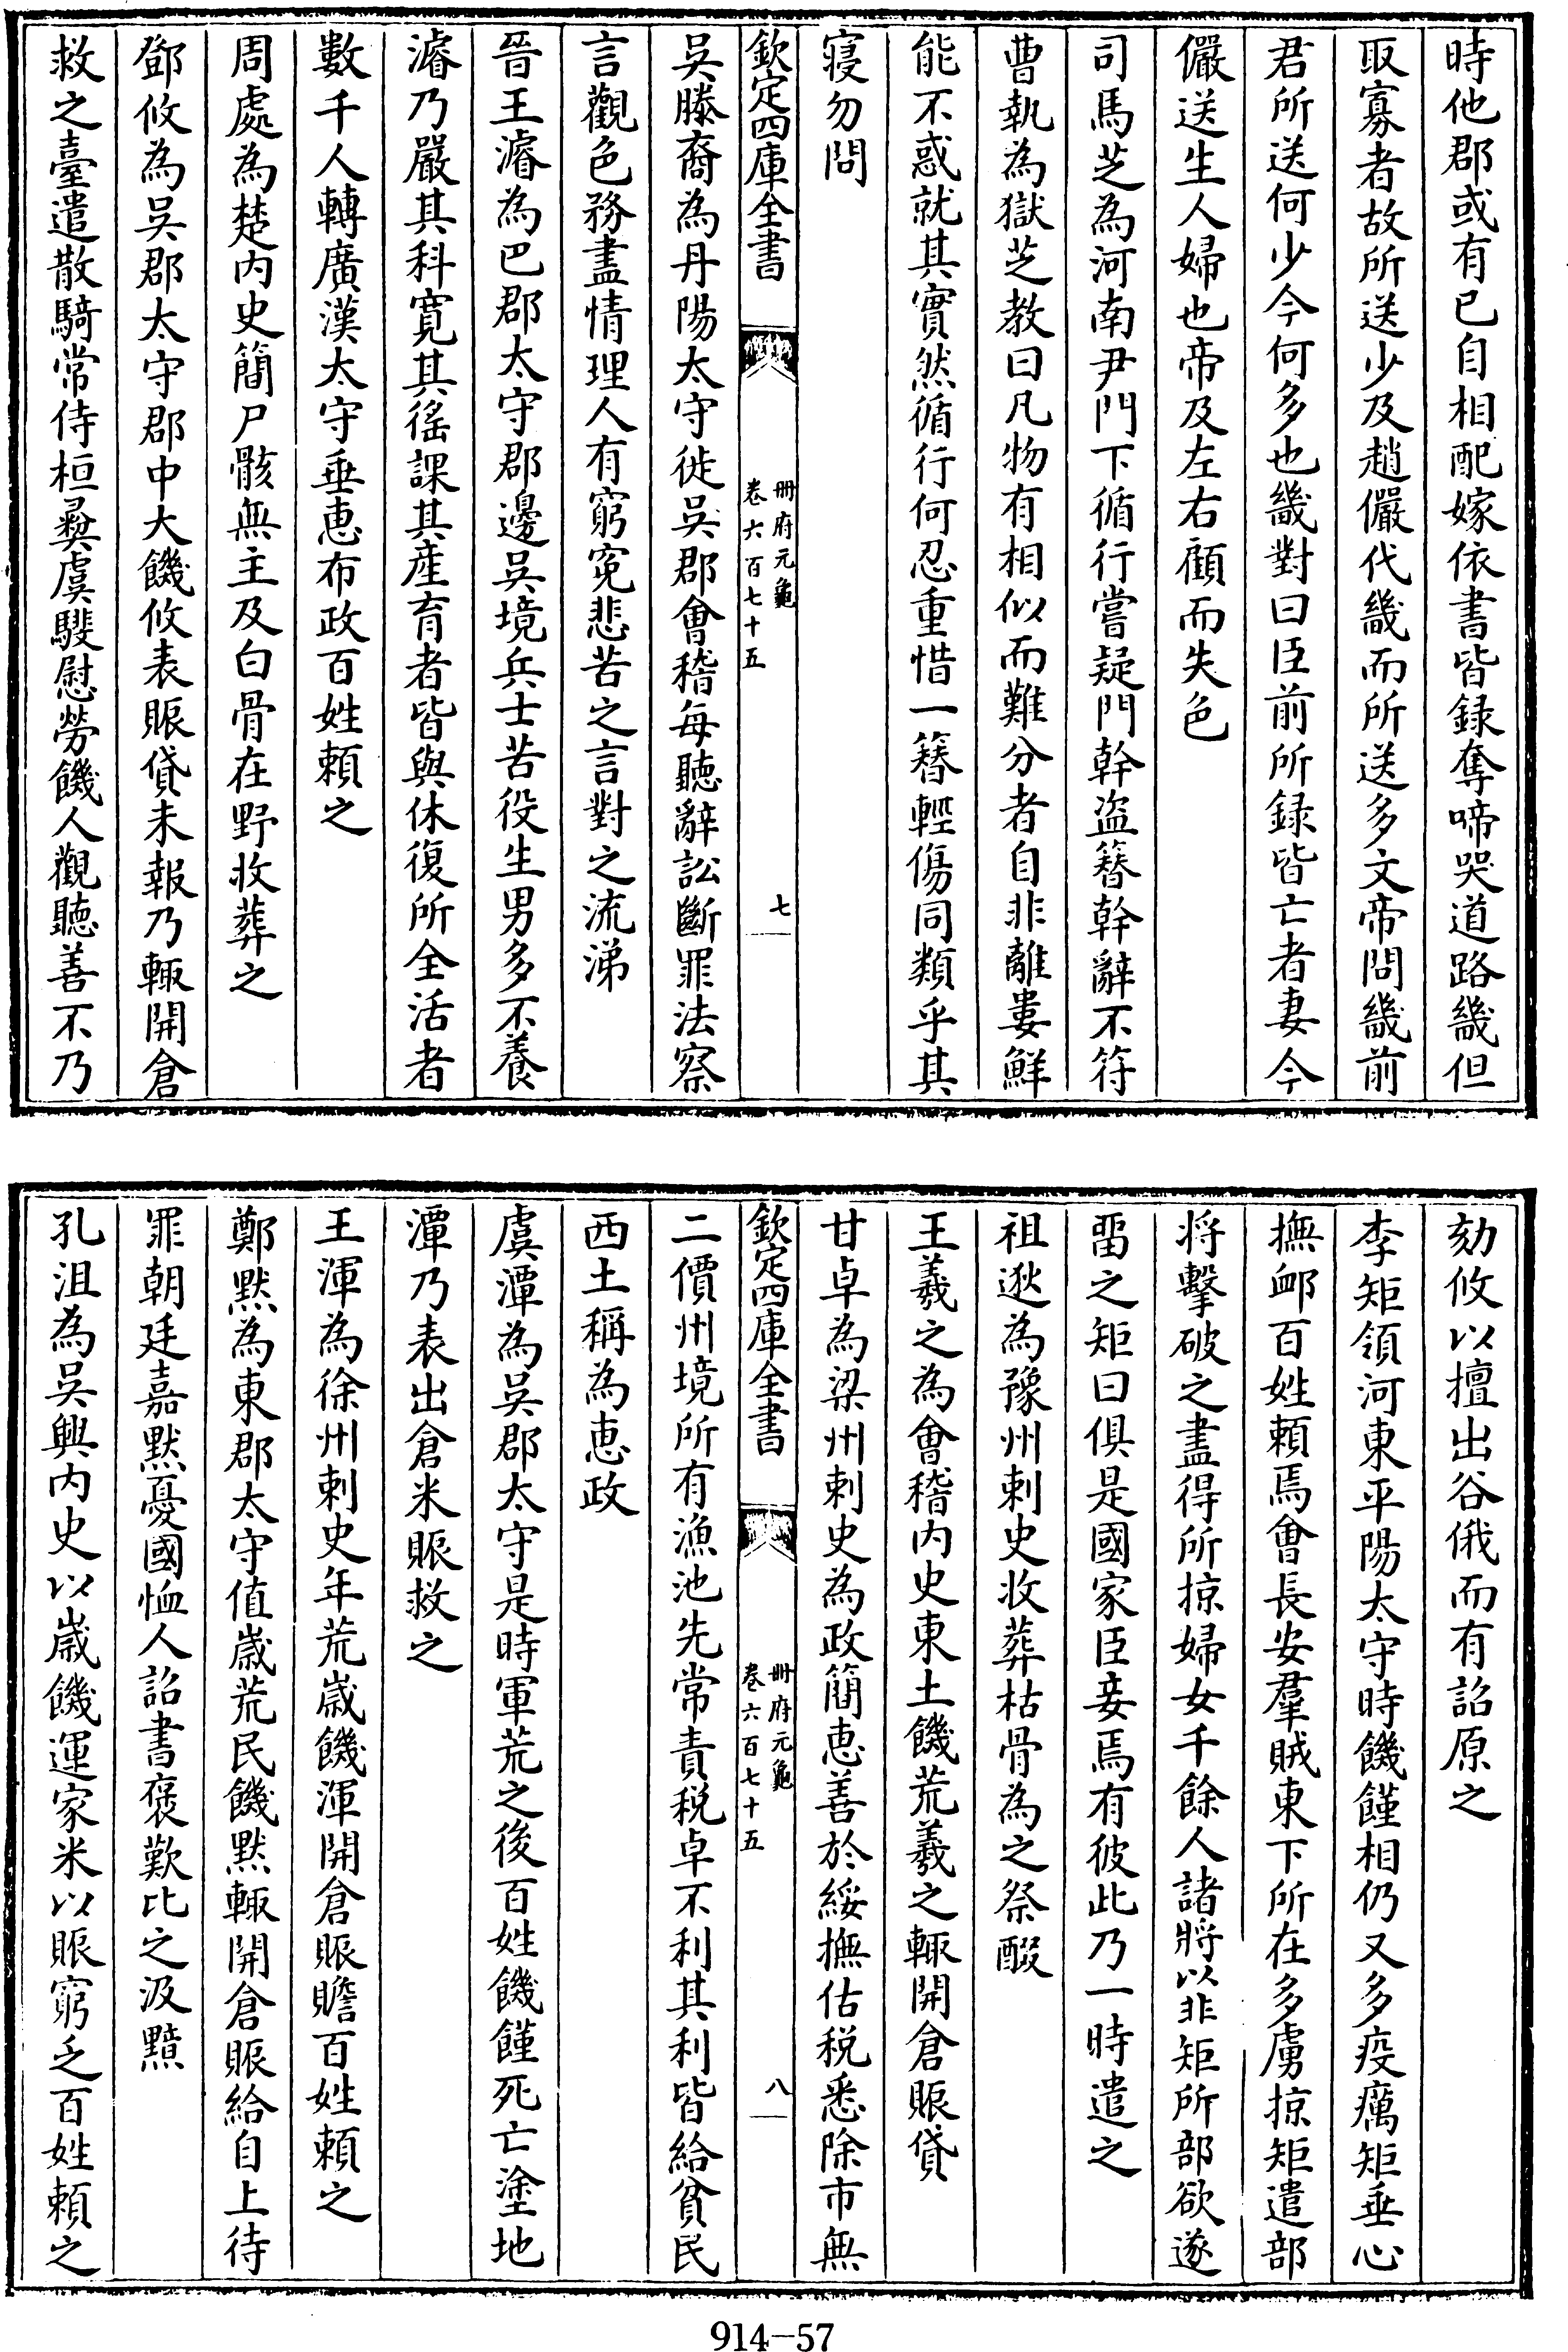 時他郡或有已自相配嫁依書皆録奪啼哭道路畿但
取寡者故所送少及趙儼代畿而所送多文帝問畿前
君所送何少今何多也畿對曰臣前所録皆亡者妻今
儼送生人婦也帝及左右顧而失色
司馬芝為河南尹門下循行嘗疑門幹盜簪幹辭不符
曹執為獄芝教曰凡物有相似而難分者自非離婁鮮
能不惑就其實然循行何忍重惜一簪輕傷同類乎其
寢勿問
欽定四庫全書
冊府元龜
卷六百七十五
七
吳滕裔為丹陽太守徙吳郡會稽每聽辭訟斷罪法察
言觀色務盡情理人有窮寃悲苦之言對之流涕
晉王濬為巴郡太守郡邊吳境兵士苦役生男多不養
濬乃嚴其科寬其徭課其産育者皆與休復所全活者
數千人轉廣漢太守垂恵布政百姓頼之
周處為楚内史簡尸骸無主及白骨在野收葬之
鄧攸為吳郡太守郡中大饑攸表賑貸未報乃輙開倉
救之臺遣散騎常侍桓彛虞𩥉慰勞饑人觀聽善不乃
劾攸以擅出谷俄而有詔原之
李矩領河東平陽太守時饑饉相仍又多疫癘矩垂心
撫䘏百姓頼焉會長安羣賊東下所在多虜掠矩遣部
将擊破之盡得所掠婦女千餘人諸將以非矩所部欲遂
畱之矩曰俱是國家臣妾焉有彼此乃一時遣之
祖逖為豫州刺史收葬枯骨為之祭醊
王羲之為會稽内史東土饑荒羲之輙開倉賑貸
甘卓為梁州刺史為政簡恵善於綏撫估税悉除市無
欽定四庫全書
冊府元龜
卷六百七十五
八
二價州境所有漁池先常責税卓不利其利皆給貧民
西土稱為恵政
虞潭為吳郡太守是時軍荒之後百姓饑饉死亡塗地
潭乃表出倉米賑救之
王渾為徐州刺史年荒嵗饑渾開倉賑贍百姓頼之
鄭黙為東郡太守值嵗荒民饑黙輙開倉賑給自上待
罪朝廷嘉黙憂國恤人詔書褒歎比之汲黯
孔沮為吳興内史以嵗饑運家米以賑窮乏百姓頼之
914-57